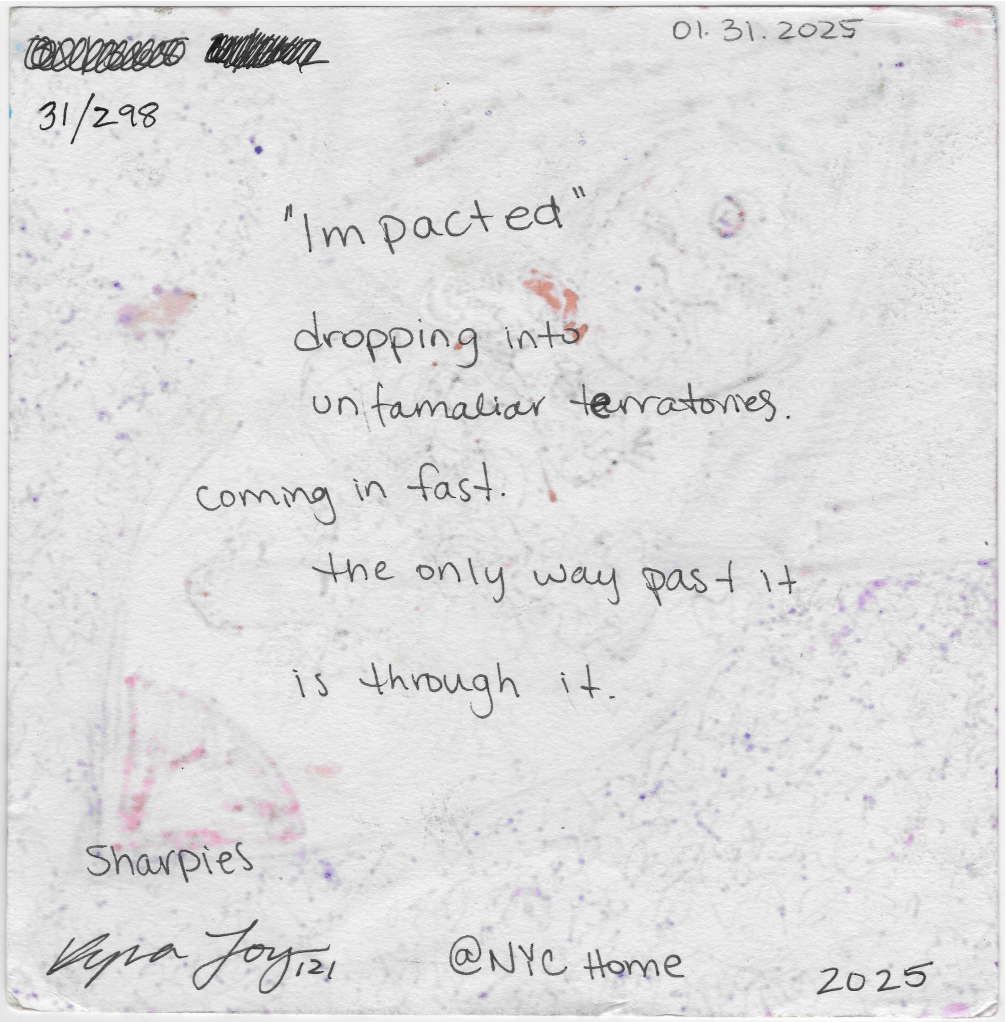 01.31.2025
31/298
"Impacted"
dropping into
unfamaliar terratories.
coming in fast.
the only way past it
is through it.
Sharpies
Joy 121
@NYC Home
2025